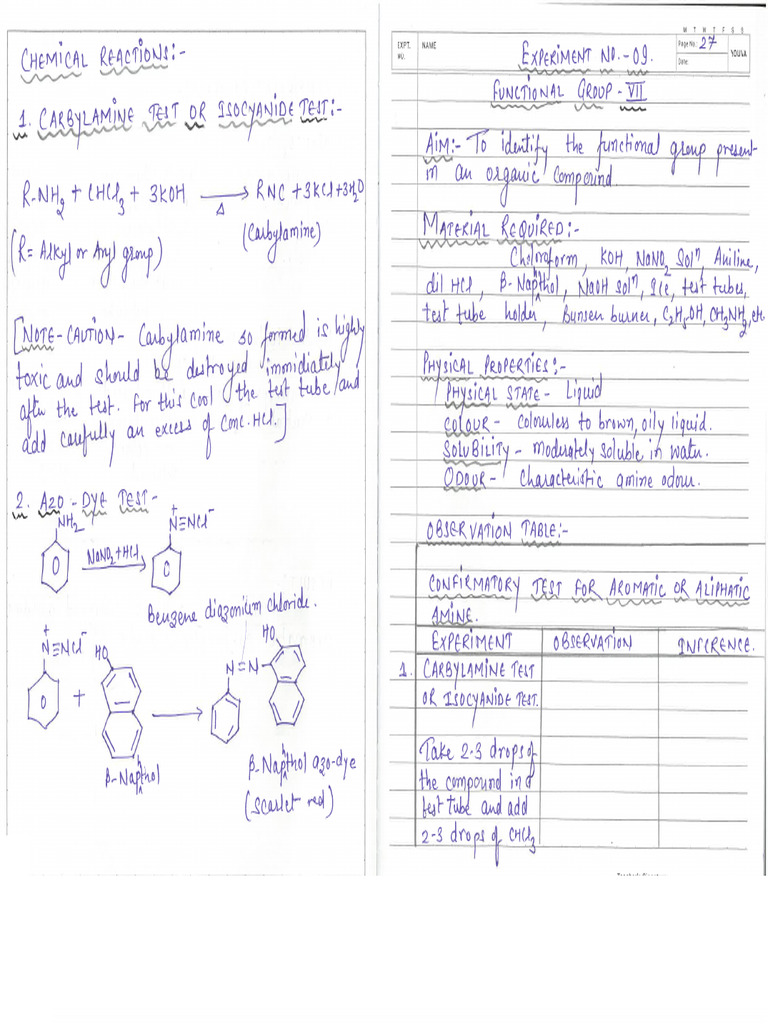 CHEMICAL REACTIONS:-
1. CARBYLAMINE TEST OR ISOCYANIDE TEST:-
R-NH2 + CHCl3 + 3KOH →Δ RNC + 3KCl + 3H2O
(Carbylamine)
(R = Alkyl or Aryl group)
[NOTE - CAUTION - Carbylamine so formed is highly
toxic and should be destroyed immidiately
after the test. For this cool the test tube and
add carefully an excess of Conc. HCl.]
2. AZO - DYE TEST -
NH2
N+≡NCl-
NaNO2 + HCl
Benzene diazonium chloride.
N+≡NCl-
HO
+
HO
N=N
β-Napthol
h
β-Napthol azo-dye
h
(Scarlet red)
M T W T F S S
EXPT. NO.
NAME
Page No.: 27
Date:
YOUVA
EXPERIMENT NO. - 09.
FUNCTIONAL GROUP - VII
AIM:- To identify the functional group present
in an organic compound.
MATERIAL REQUIRED:-
Chloroform, KOH, NaNO2 Soln, Aniline,
dil HCl, β-Napthol, NaOH soln, Ice, test tubes,
h
test tube holder, Bunsen burner, C2H5OH, CH3NH2, etc
PHYSICAL PROPERTIES:-
PHYSICAL STATE - Liquid
COLOUR - Colourless to brown, oily liquid.
SOLUBILITY - moderately soluble in water.
ODOUR - Characteristic amine odour.
OBSERVATION TABLE:-
CONFIRMATORY TEST FOR AROMATIC OR ALIPHATIC
AMINE.
EXPERIMENT OBSERVATION INFERENCE.
1. CARBYLAMINE TEST
OR ISOCYANIDE TEST.
Take 2-3 drops of
the compound in a
test tube and add
2-3 drops of CHCl3